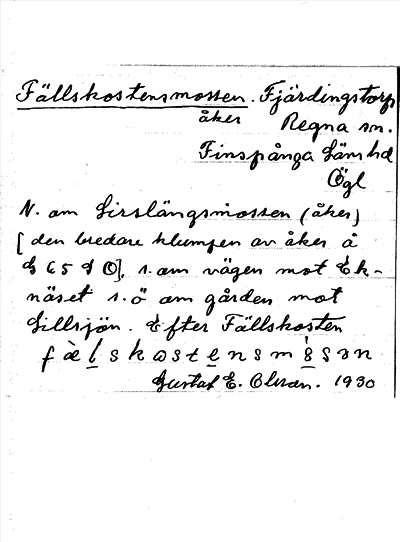 Fällskostensmossen. Fjärdingstorp
åker Regna sn.
Finspånga läns hd
Ögl
N. om Sirslängsmossen (åker)
[den bredare klumpen av åker å
G 65 d O], s. om vägen mot Ek-
näset s.ö om gården mot
Lillsjön. Efter Fällskosten
Gustaf E. Olsson. 1930